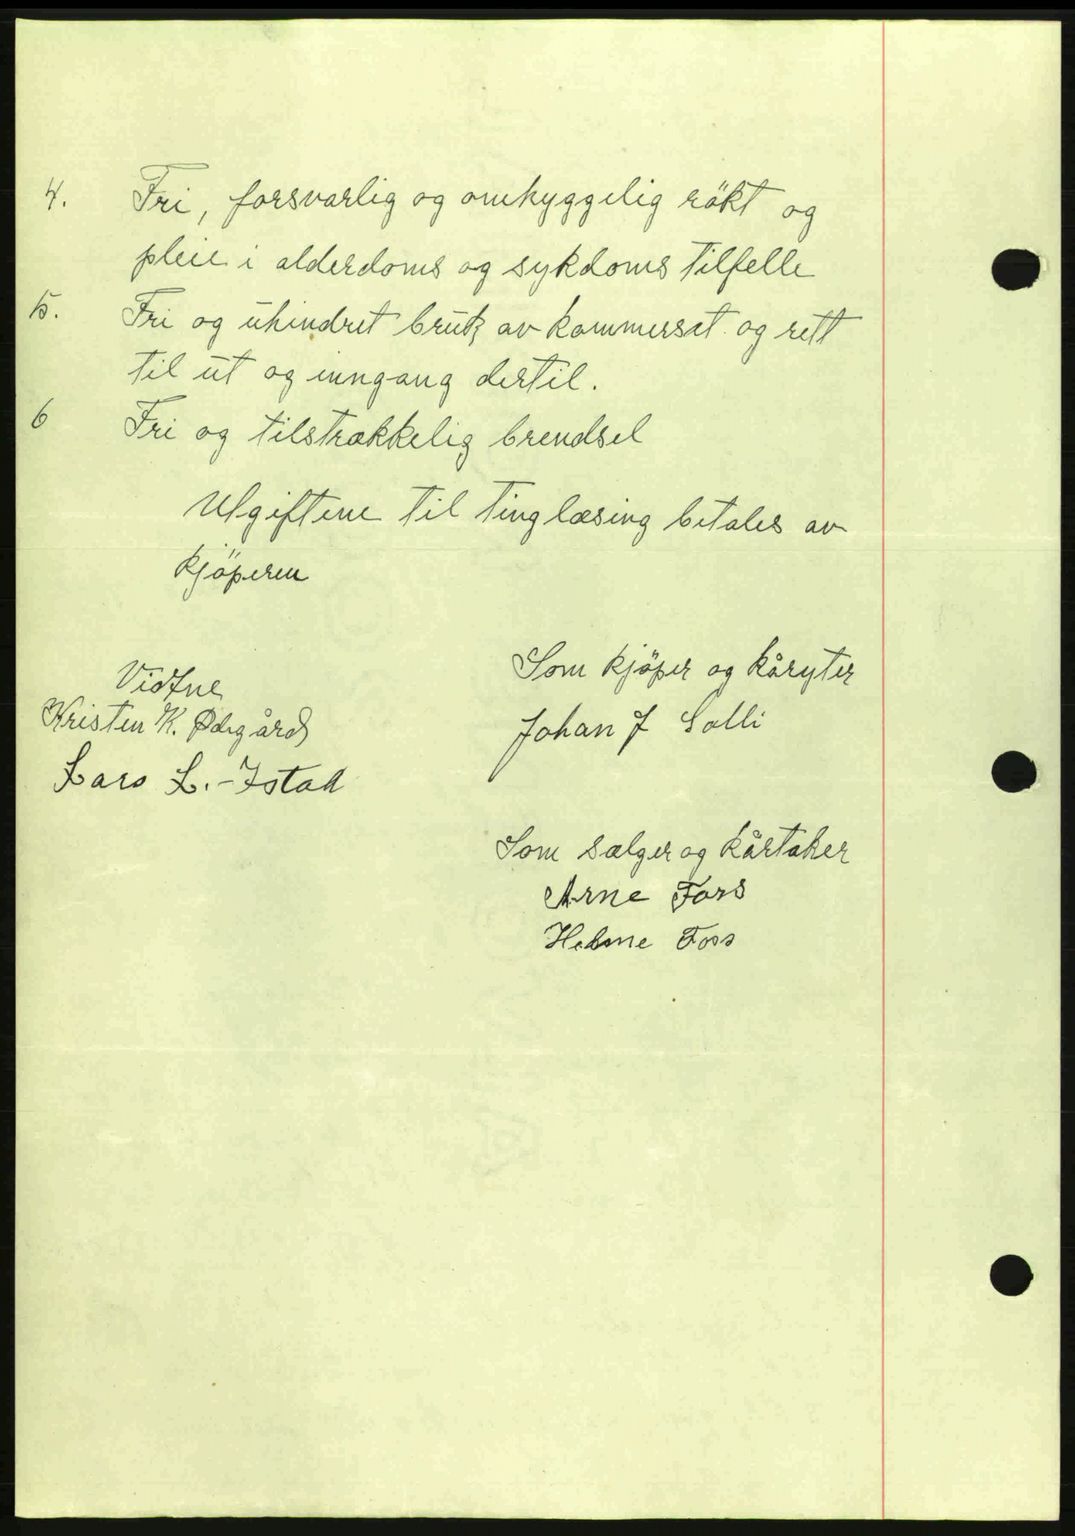 4. Fri, forsvarlig og omhyggelig rökt og
pleie i alderdoms og sykdoms tilfelle
5. Fri og uhindret bruk av kammerset og rett
til ut og inngang dertil.
6 Fri og tilstrækkelig brendsel
Utgiftene til tinglæsing betales av
kjöperen
Vidtne
Kristen K. Ødegård
Lars L. Istad
Som kjöper og kåryter
Johan J Solli
Som sælger og kårtaker
Arne Fors
Foss